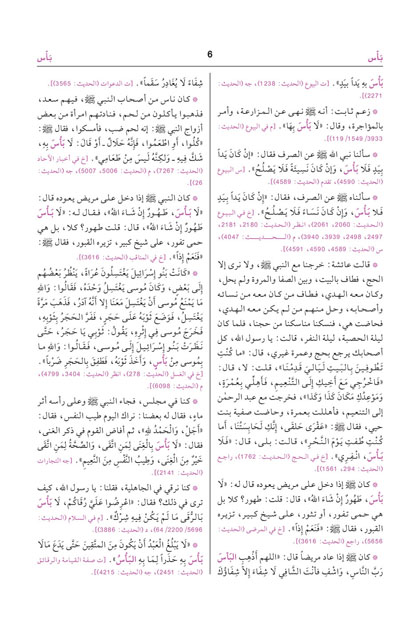 بَأس
6
بَأس
بَأسَ بِهِ يَداً بِيَدٍ». [ت البيوع (الحديث: 1238)، جه (الحديث:
2271)].
* زعم ثابت: أنه ﷺ نهى عن المزارعة، وأمر
بالمؤاجرة، وقال: «لَا بَأْسَ بِهَا». [م في البيوع (الحديث:
3933/ 1549/ 119)].
* سألنا نبي الله ﷺ عن الصرف فقال: «إِنْ كَانَ يَداً
بِيَدٍ فَلَا بَأْسَ، وَإِنْ كَانَ نَسِيئَةً فَلَا يَصْلُحُ». [س البيوع
(الحديث: 4590)، تقدم (الحديث: 4589)].
* سألناه ﷺ عن الصرف، فقال: «إِنْ كَانَ يَداً بِيَدٍ
فَلَا بَأسَ، وَإِنْ كَانَ نَسَاءً فَلَا يَصْلُحُ». [خ في البيوع
(الحديث: 2060، 2061)، انظر (الحديث: 2180، 2181،
2497، 2498، 3939، 3940)، م (الحديث: 4047)،
س (الحديث: 4589، 4590، 4591)].
* قالت عائشة: خرجنا مع النبي ﷺ، ولا نرى إلا
الحج، فطاف بالبيت، وبين الصفا والمروة ولم يحل،
وكان معه الهدي، فطاف من كان معه من نسائه
وأصحابه، وحل منهم من لم يكن معه الهدي،
فحاضت هي، فنسكنا مناسكنا من حجنا، فلما كان
ليلة الحصبة، ليلة النفر، قالت: يا رسول الله، كل
أصحابك يرجع بحج وعمرة غيري، قال: «ما كُنْتِ
تَطُوفِينَ بِالبَيتِ لَيَالِيَ قَدِمْنَا»، قلت: لا، قال:
«فَاخْرُجِي مَعَ أَخِيكِ إِلَى التَّنْعِيمِ، فَأَهِلِّي بِعُمْرَةٍ،
وَمَوْعِدُكِ مَكَانَ كَذَا وَكَذَا»، فخرجت مع عبد الرحمٰن
إلى التنعيم، فأهللت بعمرة، وحاضت صفية بنت
حيي، فقال ﷺ: «عَقْرَى حَلْقَى، إِنَّكِ لَحَابِسَتُنَا، أَما
كُنْتِ طُفْتِ يَوْمَ النَّحْرِ»، قالت: بلى، قال: «فَلَا
بَأْسَ، انْفِرِي». [خ في الحج (الحديث: 1762)، راجع
(الحديث: 294، 1561)].
* كان ﷺ إذا دخل على مريض يعوده قال له: «لَا
بَأْسَ، طَهُورٌ إِنْ شَاءَ اللهُ»، قال: قلت: طهور؟ كلا بل
هي حمى تفور، أو تثور، على شيخ كبير، تزيره
القبور، فقال ﷺ: «فَنَعَمْ إِذاً». [خ في المرضى (الحديث:
5656)، راجع (الحديث: 3616)].
* كان ﷺ إذا عاد مريضاً قال: «اللهم أَذْهِبِ البَأْسَ
رَبَّ النَّاسِ، وَاشْفِ فَأَنْتَ الشَّافِي لَا شِفَاءَ إِلاَّ شِفَاؤُكَ
شِفَاءً لَا يُغَادِرُ سَقَماً». [ت الدعوات (الحديث: 3565)].
* كان ناس من أصحاب النبي ﷺ، فيهم سعد،
فذهبوا يأكلون من لحم، فنادتهم امرأة من بعض
أزواج النبي ﷺ: إنه لحم ضب، فأمسكوا، فقال ﷺ:
«كُلُوا، أَوِ اطْعَمُوا، فَإِنَّهُ حَلَالٌ ـ أَوْ قَالَ: لَا بَأسَ بِهِ،
شَكَّ فِيهِ ـ وَلكِنَّهُ لَيسَ مِنْ طَعَامِي». [خ في أخبار الآحاد
(الحديث: 7267)، م (الحديث: 5006، 5007)، جه (الحديث:
26)].
* كان النبي ﷺ إذا دخل على مريض يعوده قال:
«لَا بَأْسَ، طَهُورٌ إِنْ شَاءَ اللهُ»، فقال له: «لَا بَأْسَ
طَهُورٌ إِنْ شَاءَ اللهُ»، قال: قلت طهور؟ كلا، بل هي
حمى تفور، على شيخ كبير، تزيره القبور، فقال ﷺ:
«فَنَعَمْ إِذاً». [خ في المناقب (الحديث: 3616)].
* «كَانَتْ بَنُو إِسْرَائِيلَ يَغْتَسِلُونَ عُرَاةً، يَنْظُرُ بَعْضُهُمْ
إِلَى بَعْضٍ، وَكَانَ مُوسى يَغْتَسِلُ وَحْدَهُ، فَقَالُوا: وَاللهِ
مَا يَمْنَعُ مُوسى أَنْ يَغْتَسِلَ مَعَنَا إِلا أَنَّهُ آدَرُ، فَذَهَبَ مَرَّةً
يَغْتَسِلُ، فَوَضَعَ ثَوْبَهُ عَلَى حَجَرٍ، فَفَرَّ الحَجَرُ بِثَوْبِهِ،
فَخَرَجَ مُوسى فِي إِثْرِهِ، يَقُولُ: ثَوْبِي يَا حَجَرُ، حَتَّى
نَظَرَتْ بَنُو إِسْرَائِيلَ إِلَى مُوسى، فَقَالُوا: وَاللهِ ما
بِمُوسى مِنْ بَأْسٍ، وَأَخَذَ ثَوْبَهُ، فَطَفِقَ بِالحَجَرِ ضَرْباً».
[خ في الغسل (الحديث: 278)، انظر (الحديث: 3404، 4799)،
م (الحديث: 6098)].
* كنا في مجلس، فجاء النبي ﷺ وعلى رأسه أثر
ماءٍ، فقال له بعضنا: نراك اليوم طيب النفس، فقال:
«أَجَلْ، وَالْحَمْدُ للهِ»، ثم أفاض القوم في ذكر الغنى،
فقال: «لَا بَأْسَ بِالْغِنَى لِمَنِ اتَّقَى، وَالصِّحَّةُ لِمَنِ اتَّقَى
خَيْرٌ مِنَ الْغِنَى، وَطِيبُ النَّفْسِ مِنَ النَّعِيمِ». [جه التجارات
(الحديث: 2141)].
* كنا نرقي في الجاهلية، فقلنا: يا رسول الله، كيف
ترى في ذلك؟ فقال: «اعْرِضُوا عَلَيَّ رُقَاكُمْ، لَا بَأْسَ
بِالرُّقَى مَا لَمْ يَكُنْ فِيهِ شِرْكٌ». [م في السلام (الحديث:
5696/ 2200/ 64)، د (الحديث: 3886)].
* «لَا يَبْلُغُ الْعَبْدُ أَنْ يَكُونَ مِنَ المتَّقِينَ حَتَّى يَدَعَ مَالَا
بَأْسَ بِهِ حَذَراً لِمَا بِهِ البَأْسُ». [ت صفة القيامة والرقائق
(الحديث: 2451)، جه (الحديث: 4215)].